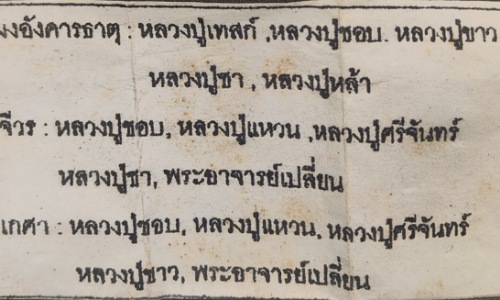 ผงอังคารธาตุ : หลวงปู่เทสก์ ,หลวงปู่ชอบ. หลวงปู่ขาว
หลวงปู่ชา , หลวงปู่หล้า
จีวร : หลวงปู่ชอบ, หลวงปู่แหวน ,หลวงปู่ศรีจันทร์
หลวงปู่ชา, พระอาจารย์เปลี่ยน
เกศา : หลวงปู่ชอบ, หลวงปู่แหวน, หลวงปู่ศรีจันทร์
หลวงปู่ขาว, พระอาจารย์เปลี่ยน